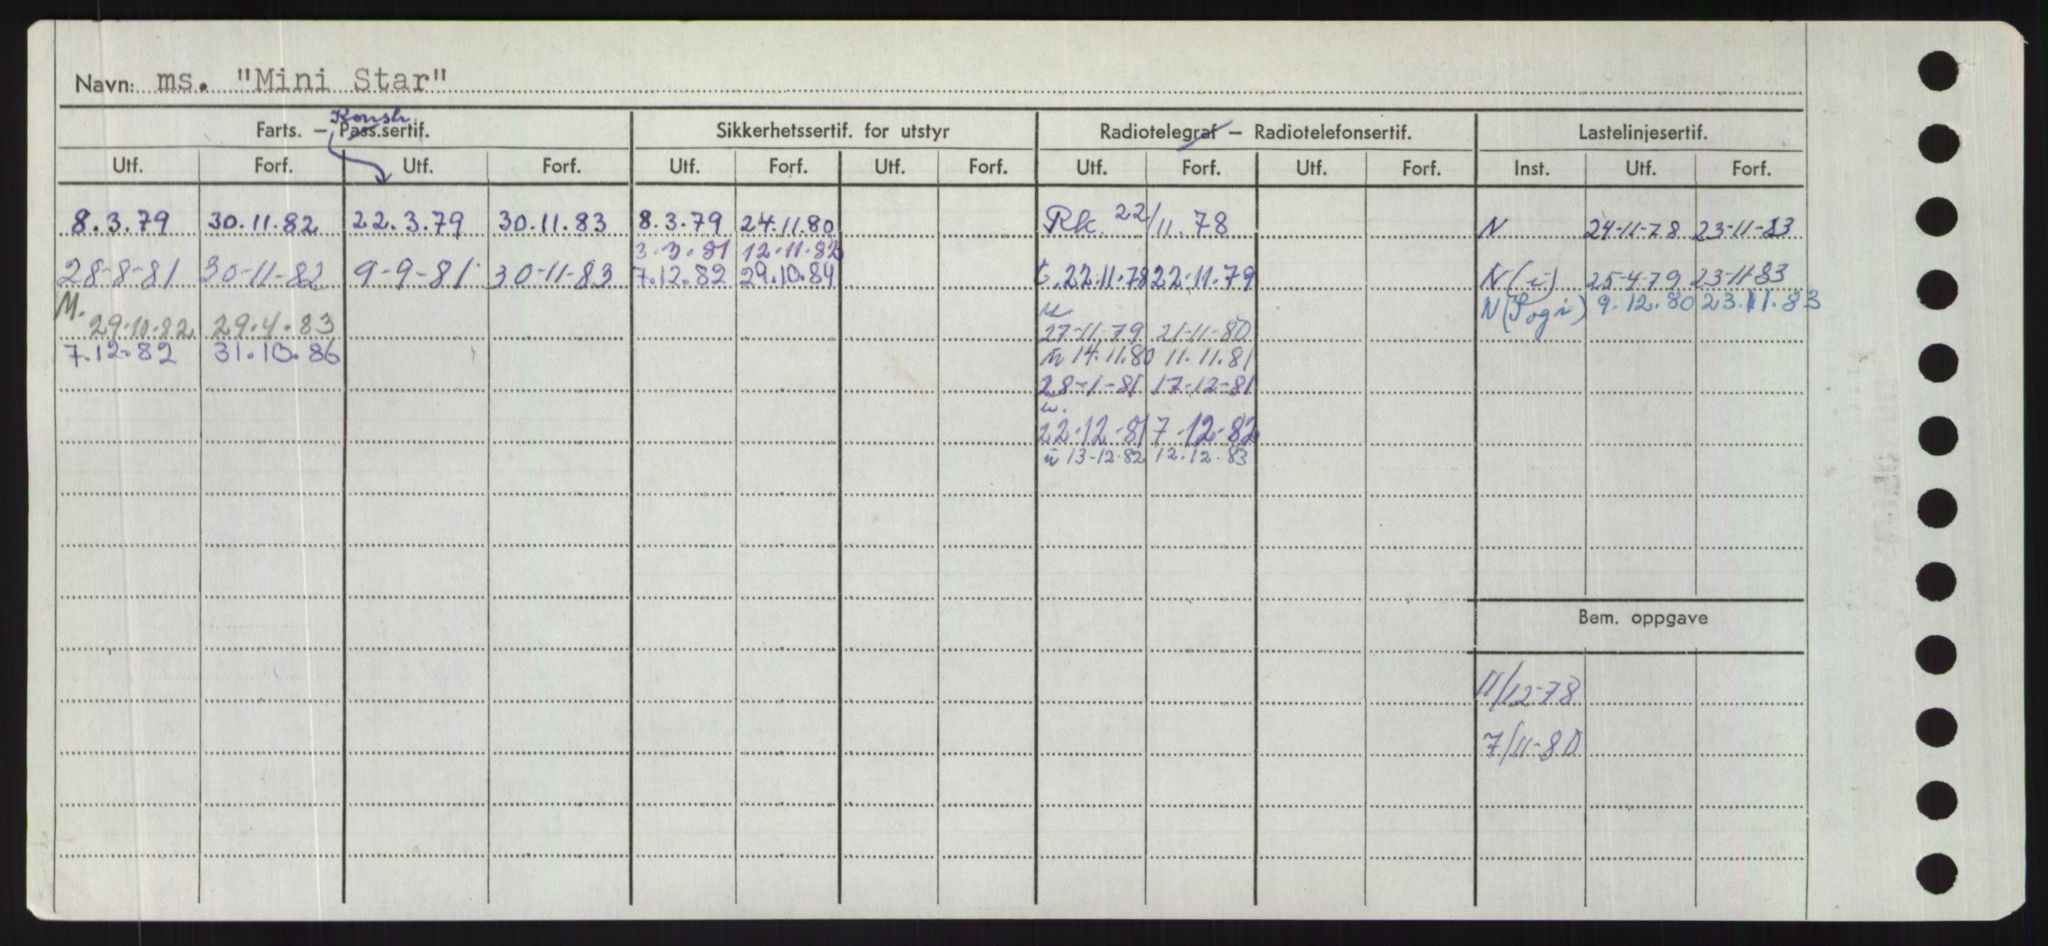 Navn: ms. "Mini Star"
Konstr
Farts. – Pass.sertif. Sikkerhetssertif. for utstyr Radiotelegraf – Radiotelefonsertif. Lastelinjesertif.
Utf. Forf. Utf. Forf. Utf. Forf. Utf. Forf. Utf. Forf. Utf. Forf. Inst. Utf. Forf.
8.3.79 30.11.82 22.3.79 30.11.83 8.3.79 24.11.80 Rk. 22/11.78 N 24-11-78 23-11-83
3.3.81 12.11.82
28-8-81 30-11-82 9-9-81 30-11-83 7.12.82 29.10.84 t.22.11.78 22.11.79 N(i) 25-4-79 23-11-83
M. N(Sogi) 9.12.80 23.11.83
29.10.82 29.4.83 27-11-79 21-11-80
7.12.82 31.10.86 14.11.80 11.11.81
28-1-81 17-12-81
22-12-81 7-12-82
13-12-82 12.12.83
Bem. oppgave
11/12-78
7/11-80